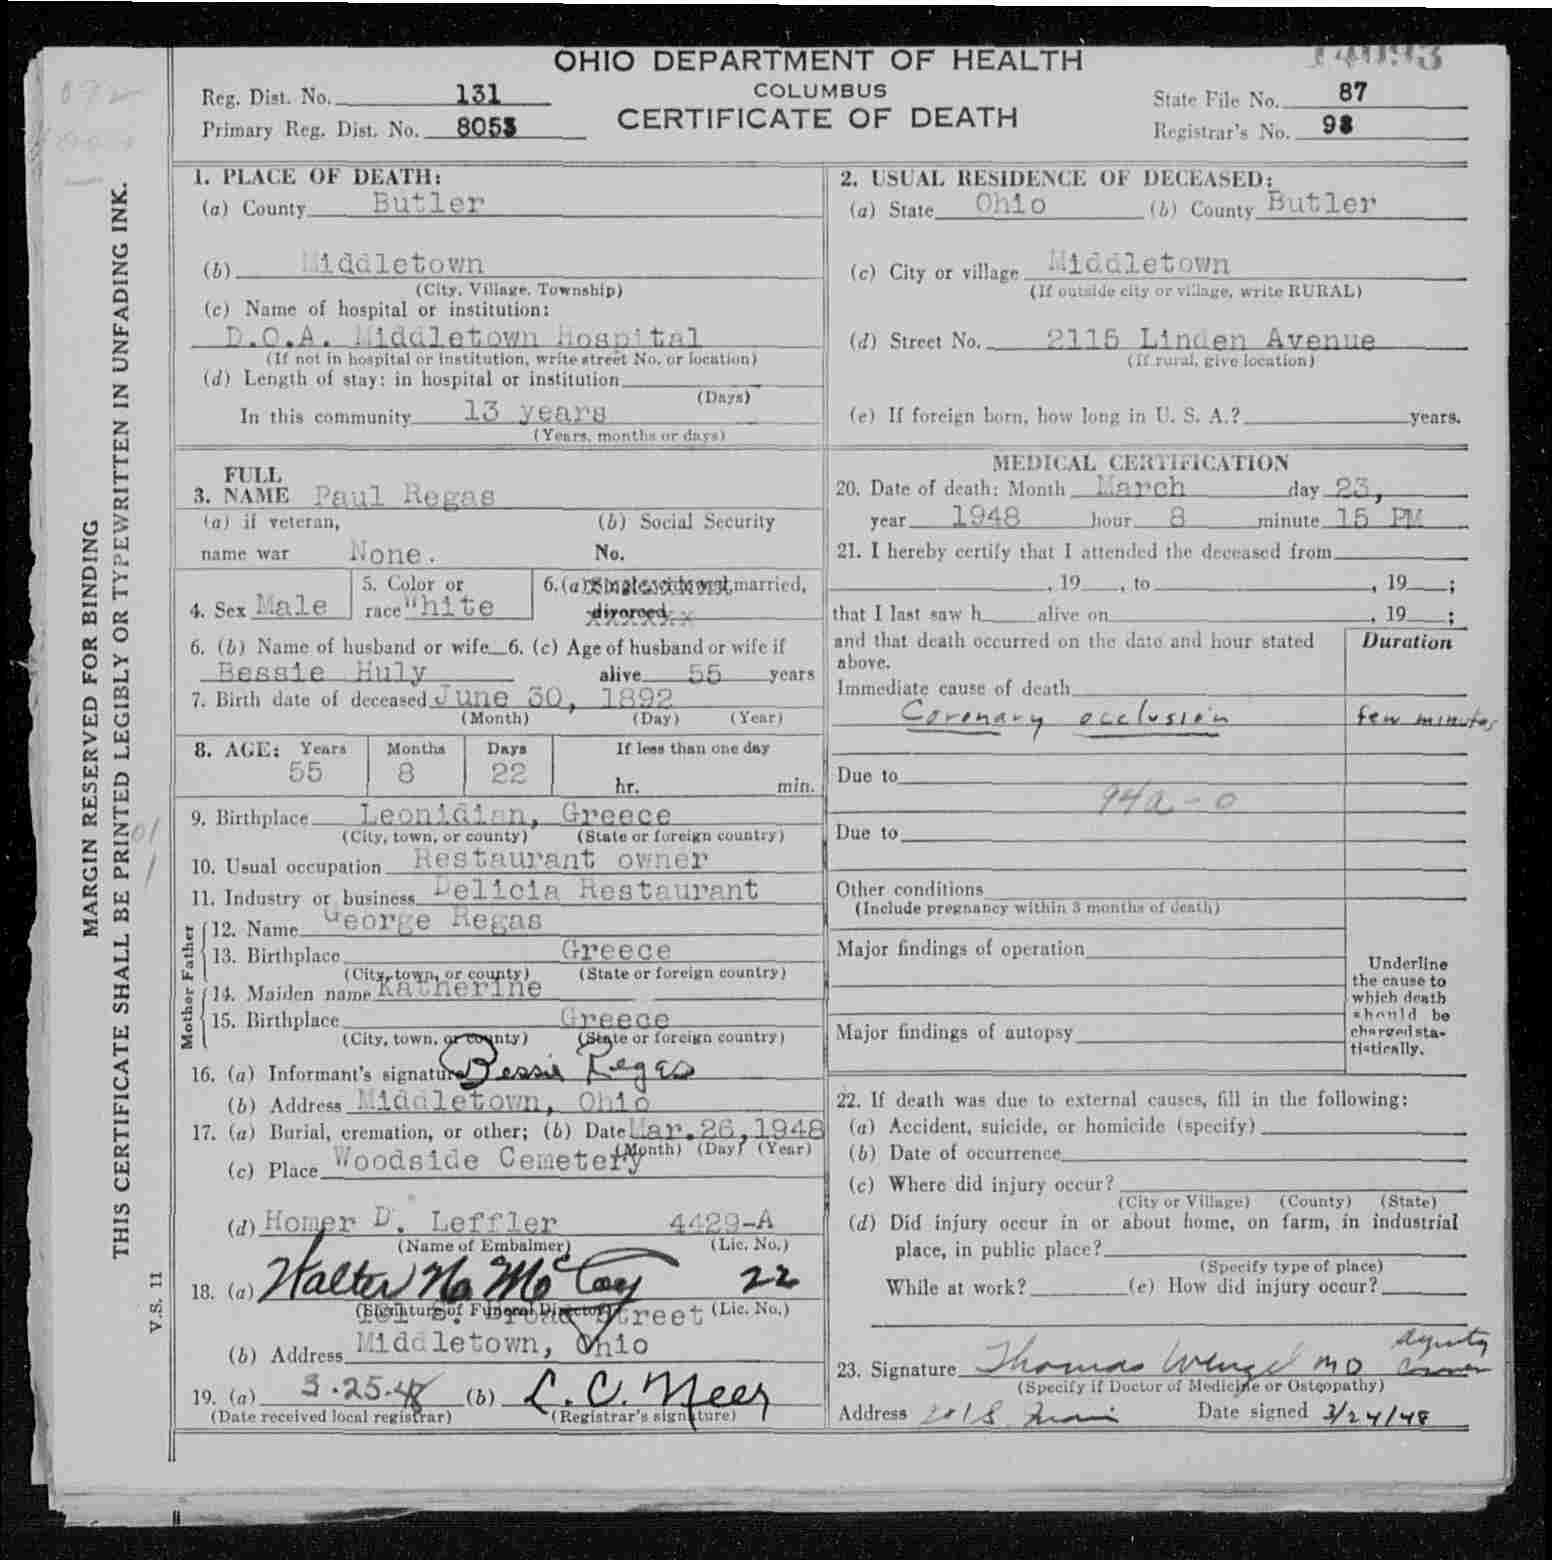 OHIO DEPARTMENT OF HEALTH
COLUMBUS
CERTIFICATE OF DEATH
Reg. Dist. No. 131
Primary Reg. Dist. No. 8053
State File No. 87
Registrar's No. 98
MARGIN RESERVED FOR BINDING
THIS CERTIFICATE SHALL BE PRINTED LEGIBLY OR TYPEWRITTEN IN UNFADING INK.
V.S. 11
1. PLACE OF DEATH:
(a) County Butler
(b) Middletown
(City, Village, Township)
(c) Name of hospital or institution:
D.O.A. Middletown Hospital
(If not in hospital or institution, write street No. or location)
(d) Length of stay: in hospital or institution
(Days)
In this community 13 years
(Years, months or days)
2. USUAL RESIDENCE OF DECEASED:
(a) State Ohio (b) County Butler
(c) City or village Middletown
(If outside city or village, write RURAL)
(d) Street No. 2115 Linden Avenue
(If rural, give location)
(e) If foreign born, how long in U. S. A.? years.
3. FULL NAME Paul Regas
(a) if veteran, name war None.
(b) Social Security No.
4. Sex Male
5. Color or race White
6. (a) Single, widowed, married, divorced
6. (b) Name of husband or wife 6. (c) Age of husband or wife if
Bessie Huly alive 55 years
7. Birth date of deceased June 30, 1892
(Month) (Day) (Year)
8. AGE: Years Months Days If less than one day
55 8 22 hr. min.
9. Birthplace Leonidian, Greece
(City, town, or county) (State or foreign country)
10. Usual occupation Restaurant owner
11. Industry or business Delicia Restaurant
Father
12. Name George Regas
13. Birthplace Greece
(City, town, or county) (State or foreign country)
Mother
14. Maiden name Katherine
15. Birthplace Greece
(City, town, or county) (State or foreign country)
16. (a) Informant's signature Bessie Regas
(b) Address Middletown, Ohio
17. (a) Burial, cremation, or other; (b) Date Mar. 26, 1948
(Month) (Day) (Year)
(c) Place Woodside Cemetery
(d) Homer D. Leffler 4429-A
(Name of Embalmer) (Lic. No.)
18. (a) Walter H. McCoy 22
(Signature of Funeral Director) (Lic. No.)
S. Broad Street
(b) Address Middletown, Ohio
19. (a) 3-25-48 (b) L. C. Meer
(Date received local registrar) (Registrar's signature)
MEDICAL CERTIFICATION
20. Date of death: Month March day 23,
year 1948 hour 8 minute 15 PM
21. I hereby certify that I attended the deceased from
, 19 , to , 19 ;
that I last saw h alive on , 19 ;
and that death occurred on the date and hour stated above.
Duration
Immediate cause of death
Coronary occlusion few minutes
Due to
94a-0
Due to
Other conditions
(Include pregnancy within 3 months of death)
Major findings of operation
Major findings of autopsy
Underline
the cause to
which death
should be
charged sta-
tistically.
22. If death was due to external causes, fill in the following:
(a) Accident, suicide, or homicide (specify)
(b) Date of occurrence
(c) Where did injury occur?
(City or Village) (County) (State)
(d) Did injury occur in or about home, on farm, in industrial
place, in public place?
(Specify type of place)
While at work? (e) How did injury occur?
23. Signature Thomas Wenzel MD deputy coroner
(Specify if Doctor of Medicine or Osteopathy)
Address Date signed 3/24/48